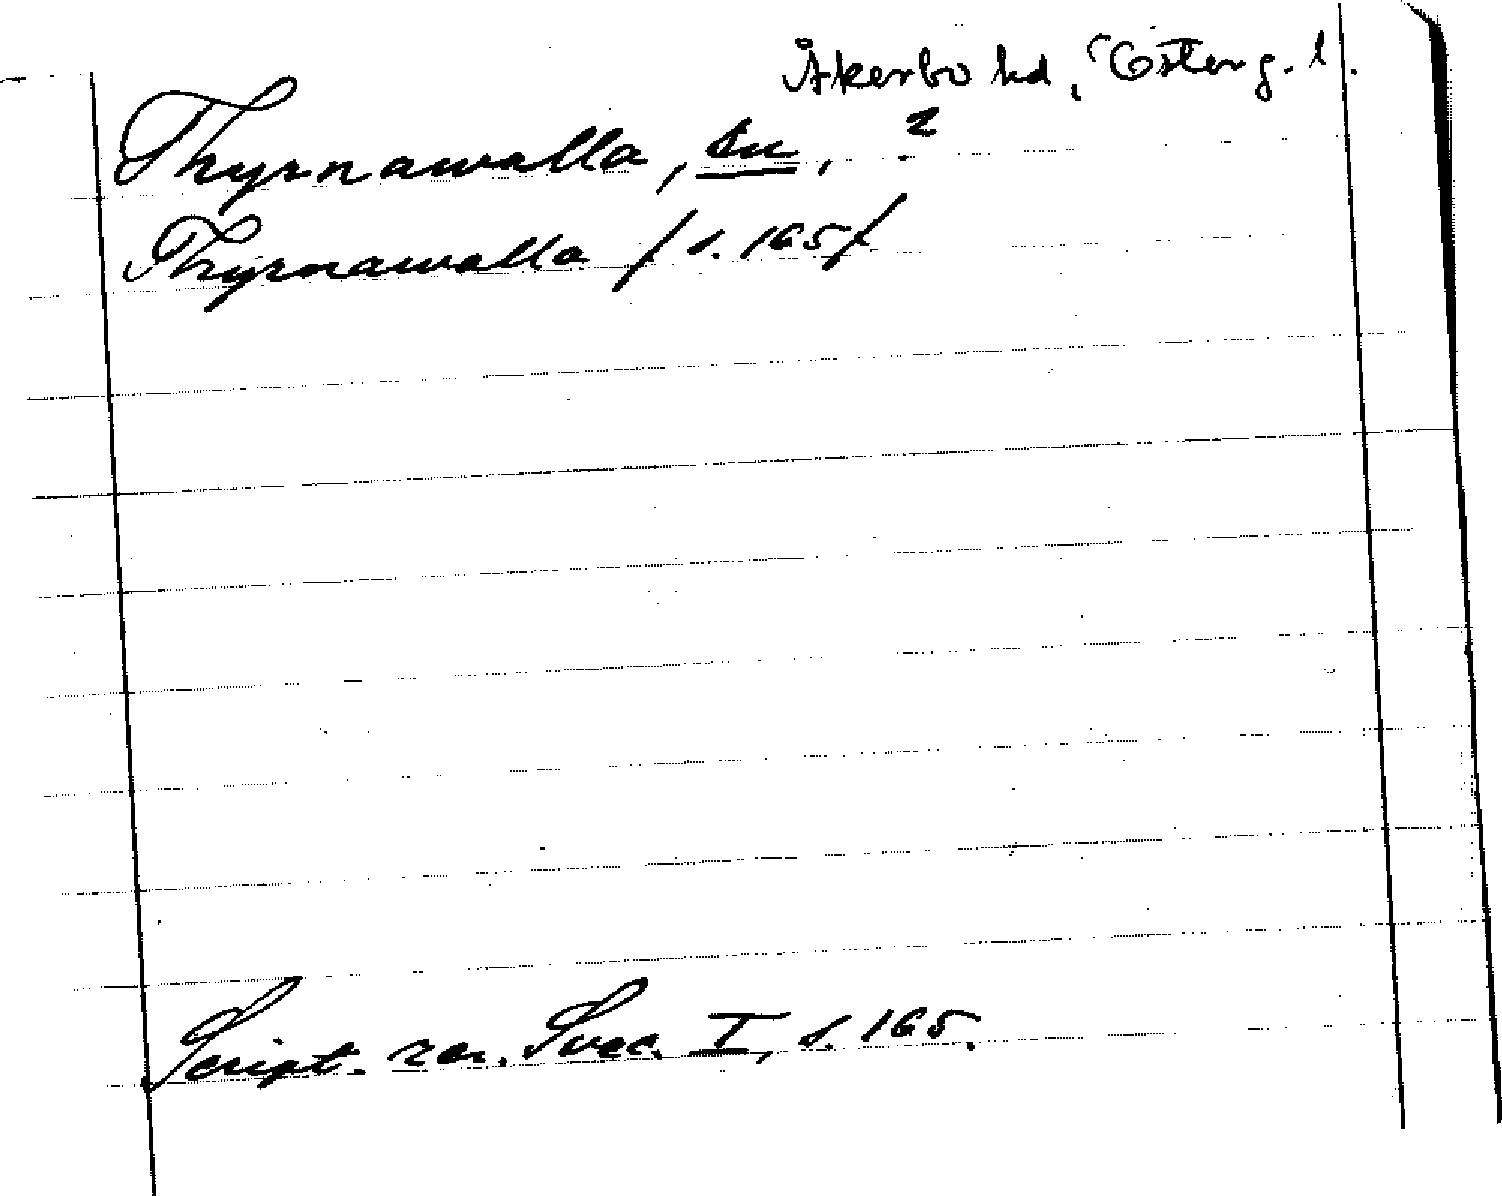 Åkerbo hd, Österg. l.
Thyrnawalla, sn, ?
Thyrnawalla / s. 165/
Script. rer. Svec. I, s. 165.